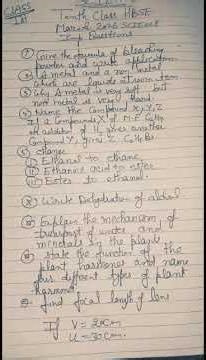 CLASS
Tenth Class HBSE
March 2026 SCIENCE
Imp Questions
Give the formula of bleaching
powder and write application
A metal and a non metal
which are liquid at room tem
Why A metal is very soft but
non metal is very hard
Name the Compound X, Y, Z
If a compounds X of M.F C₂H₆O
on addition of H₂ gives another
Compound Y, give Z
change
I Ethanol to ethane
II Ethanoic acid to ester
III Ester to ethanol.
Write Dehydration of alcohol
Explain the mechanism of
transport of water and
minerals in the plants
State the function of the
plant hormones and name
different types of plant
hormones
find focal length of lens
If V = 20cm
U = 30cm